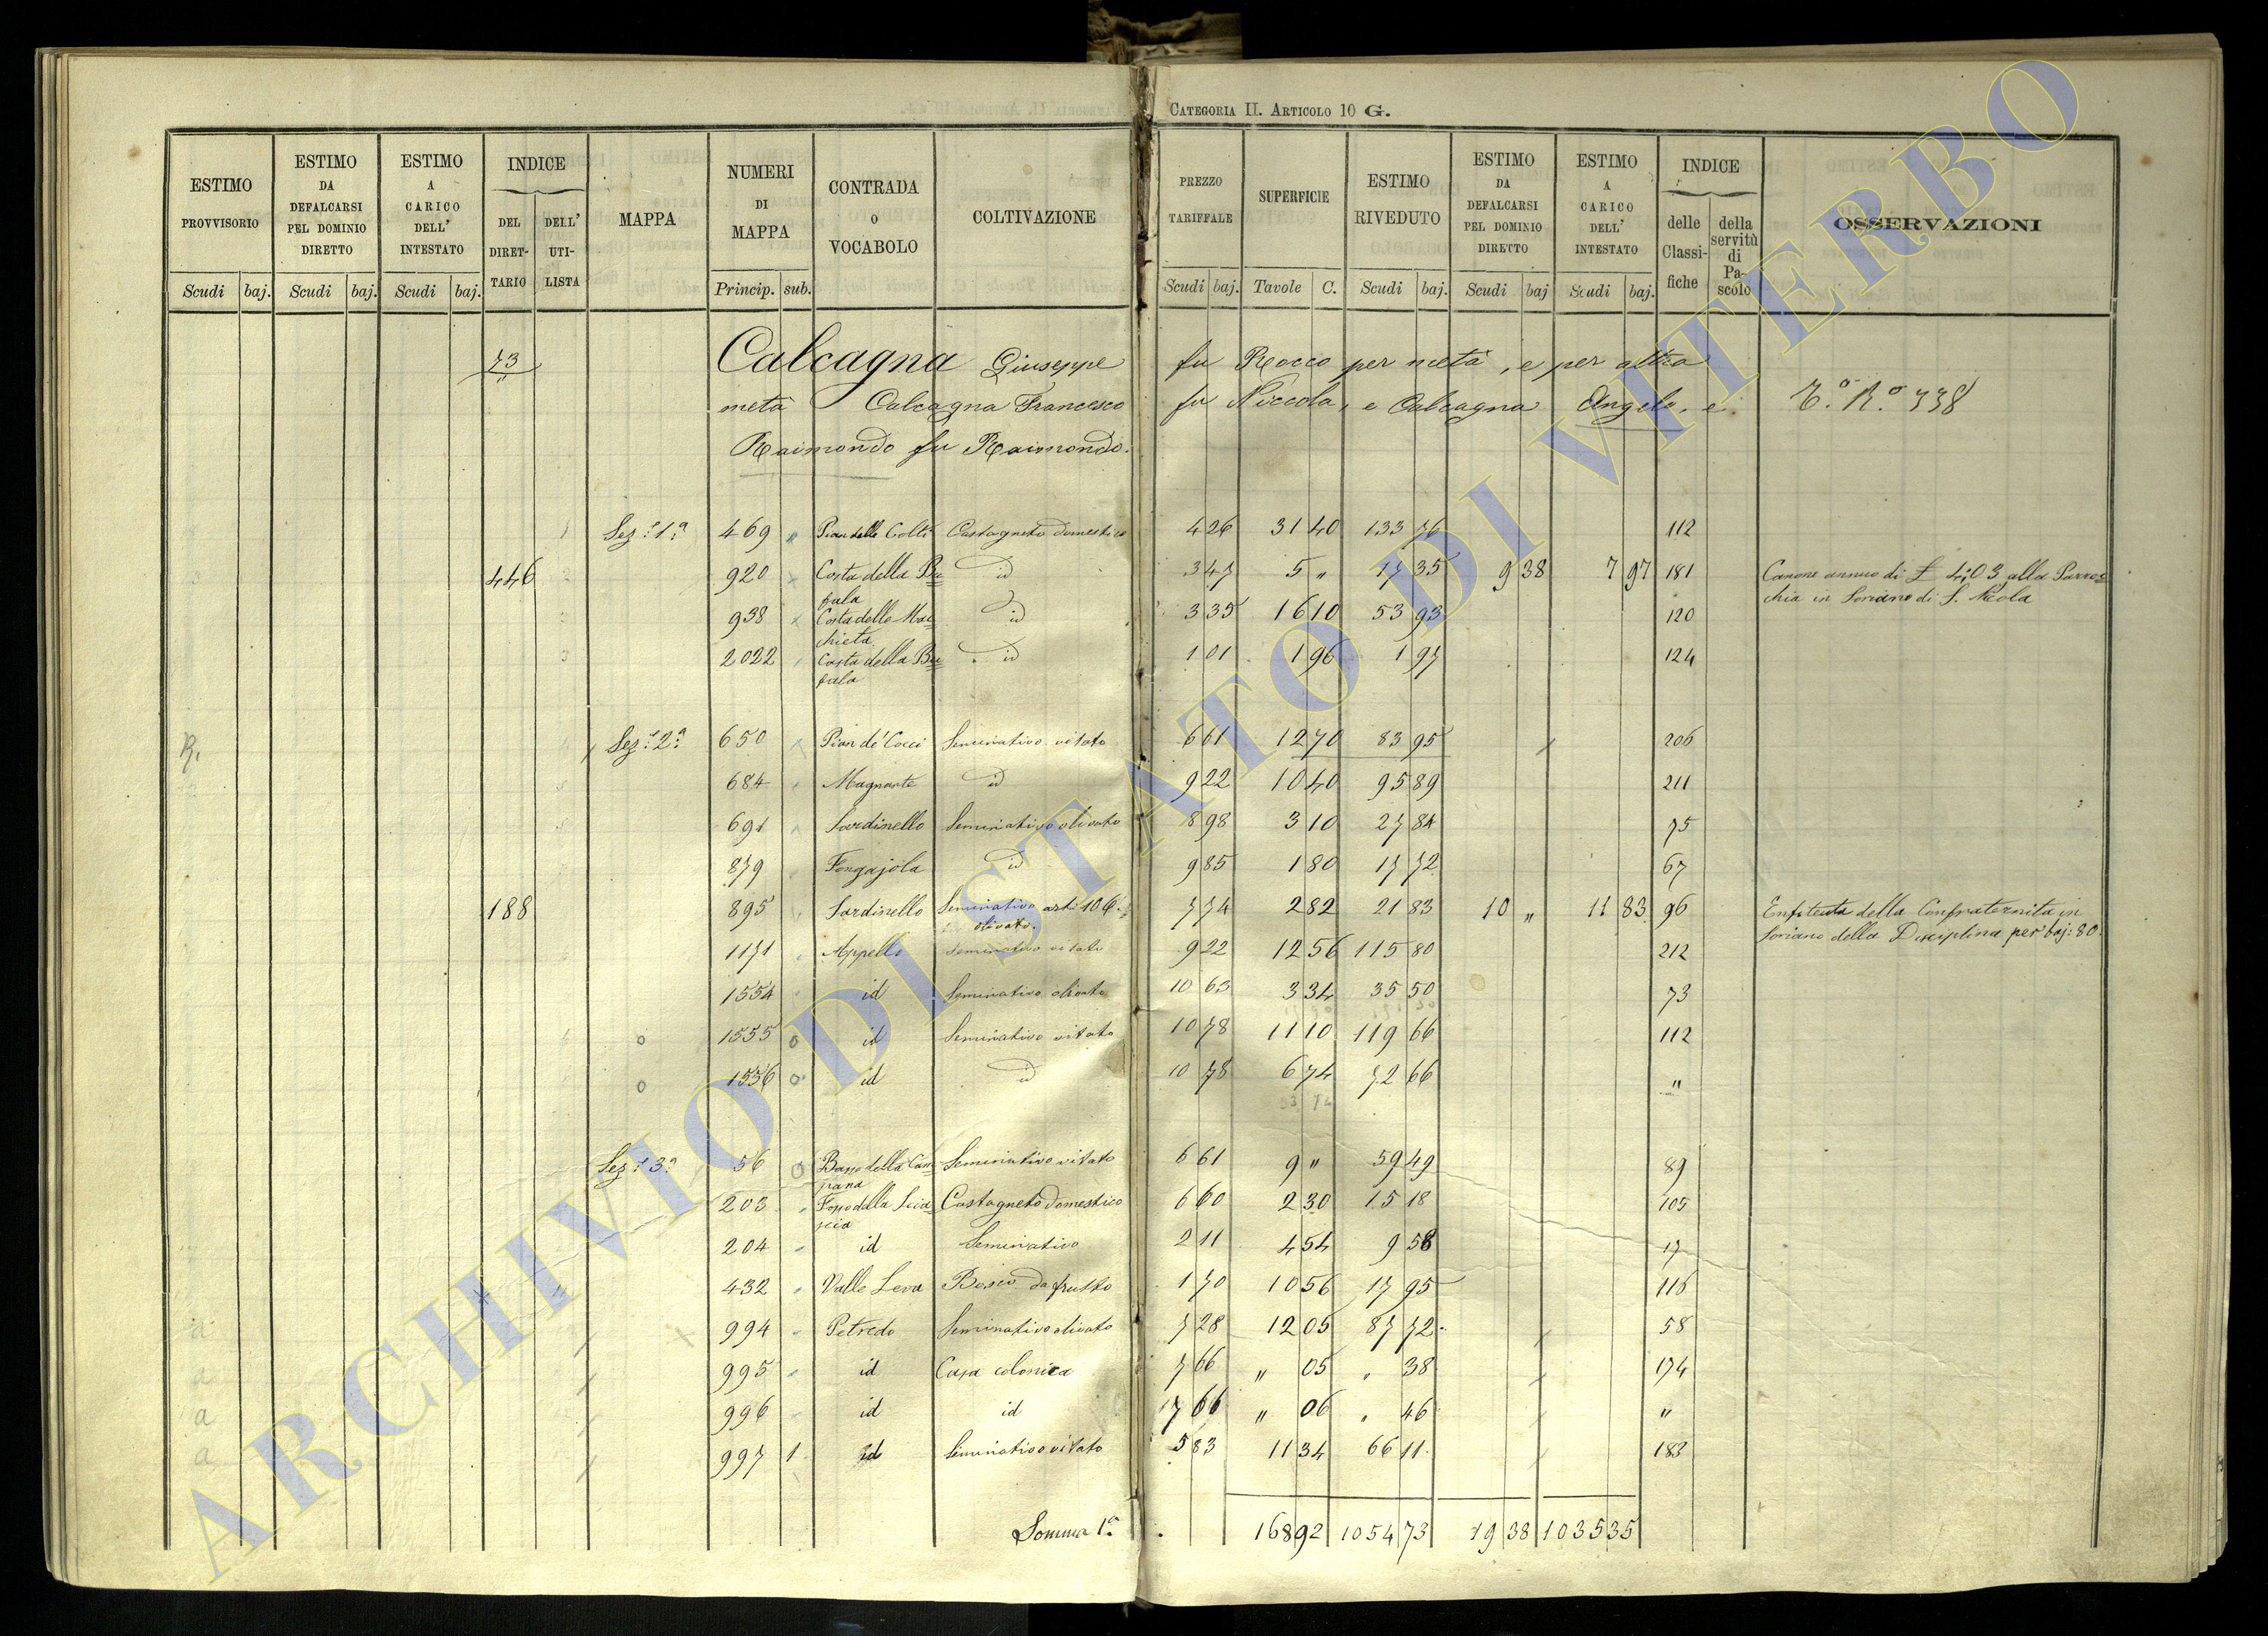 CATEGORIA II. ARTICOLO 10 G.
ESTIMO PROVVISORIO Scudi baj.
ESTIMO DA DEFALCARSI PEL DOMINIO DIRETTO Scudi baj.
ESTIMO A CARICO DELL' INTESTATO Scudi baj.
INDICE DEL DIRET-TARIO DELL' UTI-LISTA
MAPPA
NUMERI DI MAPPA Princip. sub.
CONTRADA O VOCABOLO
COLTIVAZIONE
PREZZO TARIFFALE Scudi baj.
SUPERFICIE Tavole C.
ESTIMO RIVEDUTO Scudi baj.
ESTIMO DA DEFALCARSI PEL DOMINIO DIRETTO Scudi baj
ESTIMO A CARICO DELL' INTESTATO Scudi baj.
INDICE delle Classi-fiche della servitù di Pa-scolo
OSSERVAZIONI
73 Calcagna Giuseppe fu Rocco per metà, e per altra
metà Calcagna Francesco fu Niccola, e Calcagna Angelo, e
Raimondo fu Raimondo.
T.º N.º 338
Sez.e 1.a 469 " Pian delle Colti Castagneto domestico 4 26 31 40 133 76 112
446 920 Costa della Bu=fala id 3 47 5 " 17 35 9 38 7 97 181 Canone annuo di £ 4:03 alla Parroc=chia in Soriano di S. Nicola
938 Costa delle Mac=chieta id 3 35 16 10 53 93 120
2022 Costa della Bu=fala id 1 01 1 96 1 97 124
R. Sez.e 2.a 650 Pian de' Cocci Seminativo vitato 6 61 12 70 83 95 206
684 Magnante id 9 22 10 40 95 89 211
691 Sardinello Seminativo olivato 8 98 3 10 27 84 75
879 Fongajola id 9 85 1 80 17 72 67
188 895 Sardinello Seminativo arti 106. olivato. 7 74 2 82 21 83 10 " 11 83 96 Enfiteuta della Confraternita in Soriano della Disciplina per baj: 80.
1171 Appello Seminativo vitato 9 22 12 56 115 80 212
1554 id Seminativo olivato 10 63 3 34 35 50 73
o 1555 o id Seminativo vitato 10 78 11 10 119 66 112
o 1556 o id id 10 78 6 74 72 66 "
Sez.e 3.a 56 o Basso della Cam=pana Seminativo vitato 6 61 9 " 59 49 89
203 Fosso della Scia=scia Castagneto domestico 6 60 2 30 15 18 105
204 id Seminativo 2 11 4 54 9 58 17
432 Valle Leva Bosco da frutto 1 70 10 56 17 95 116
a 994 Petredo Seminativo olivato 7 28 12 05 87 72 58
a 995 id Casa colonica 7 66 " 05 " 38 174
a 996 id id 7 66 " 06 " 46 "
a 997 1 id Seminativo vitato 5 83 11 34 66 11 183
Somma 1.a 168 92 1054 73 19 38 1035 35
ARCHIVIO DI STATO DI VITERBO